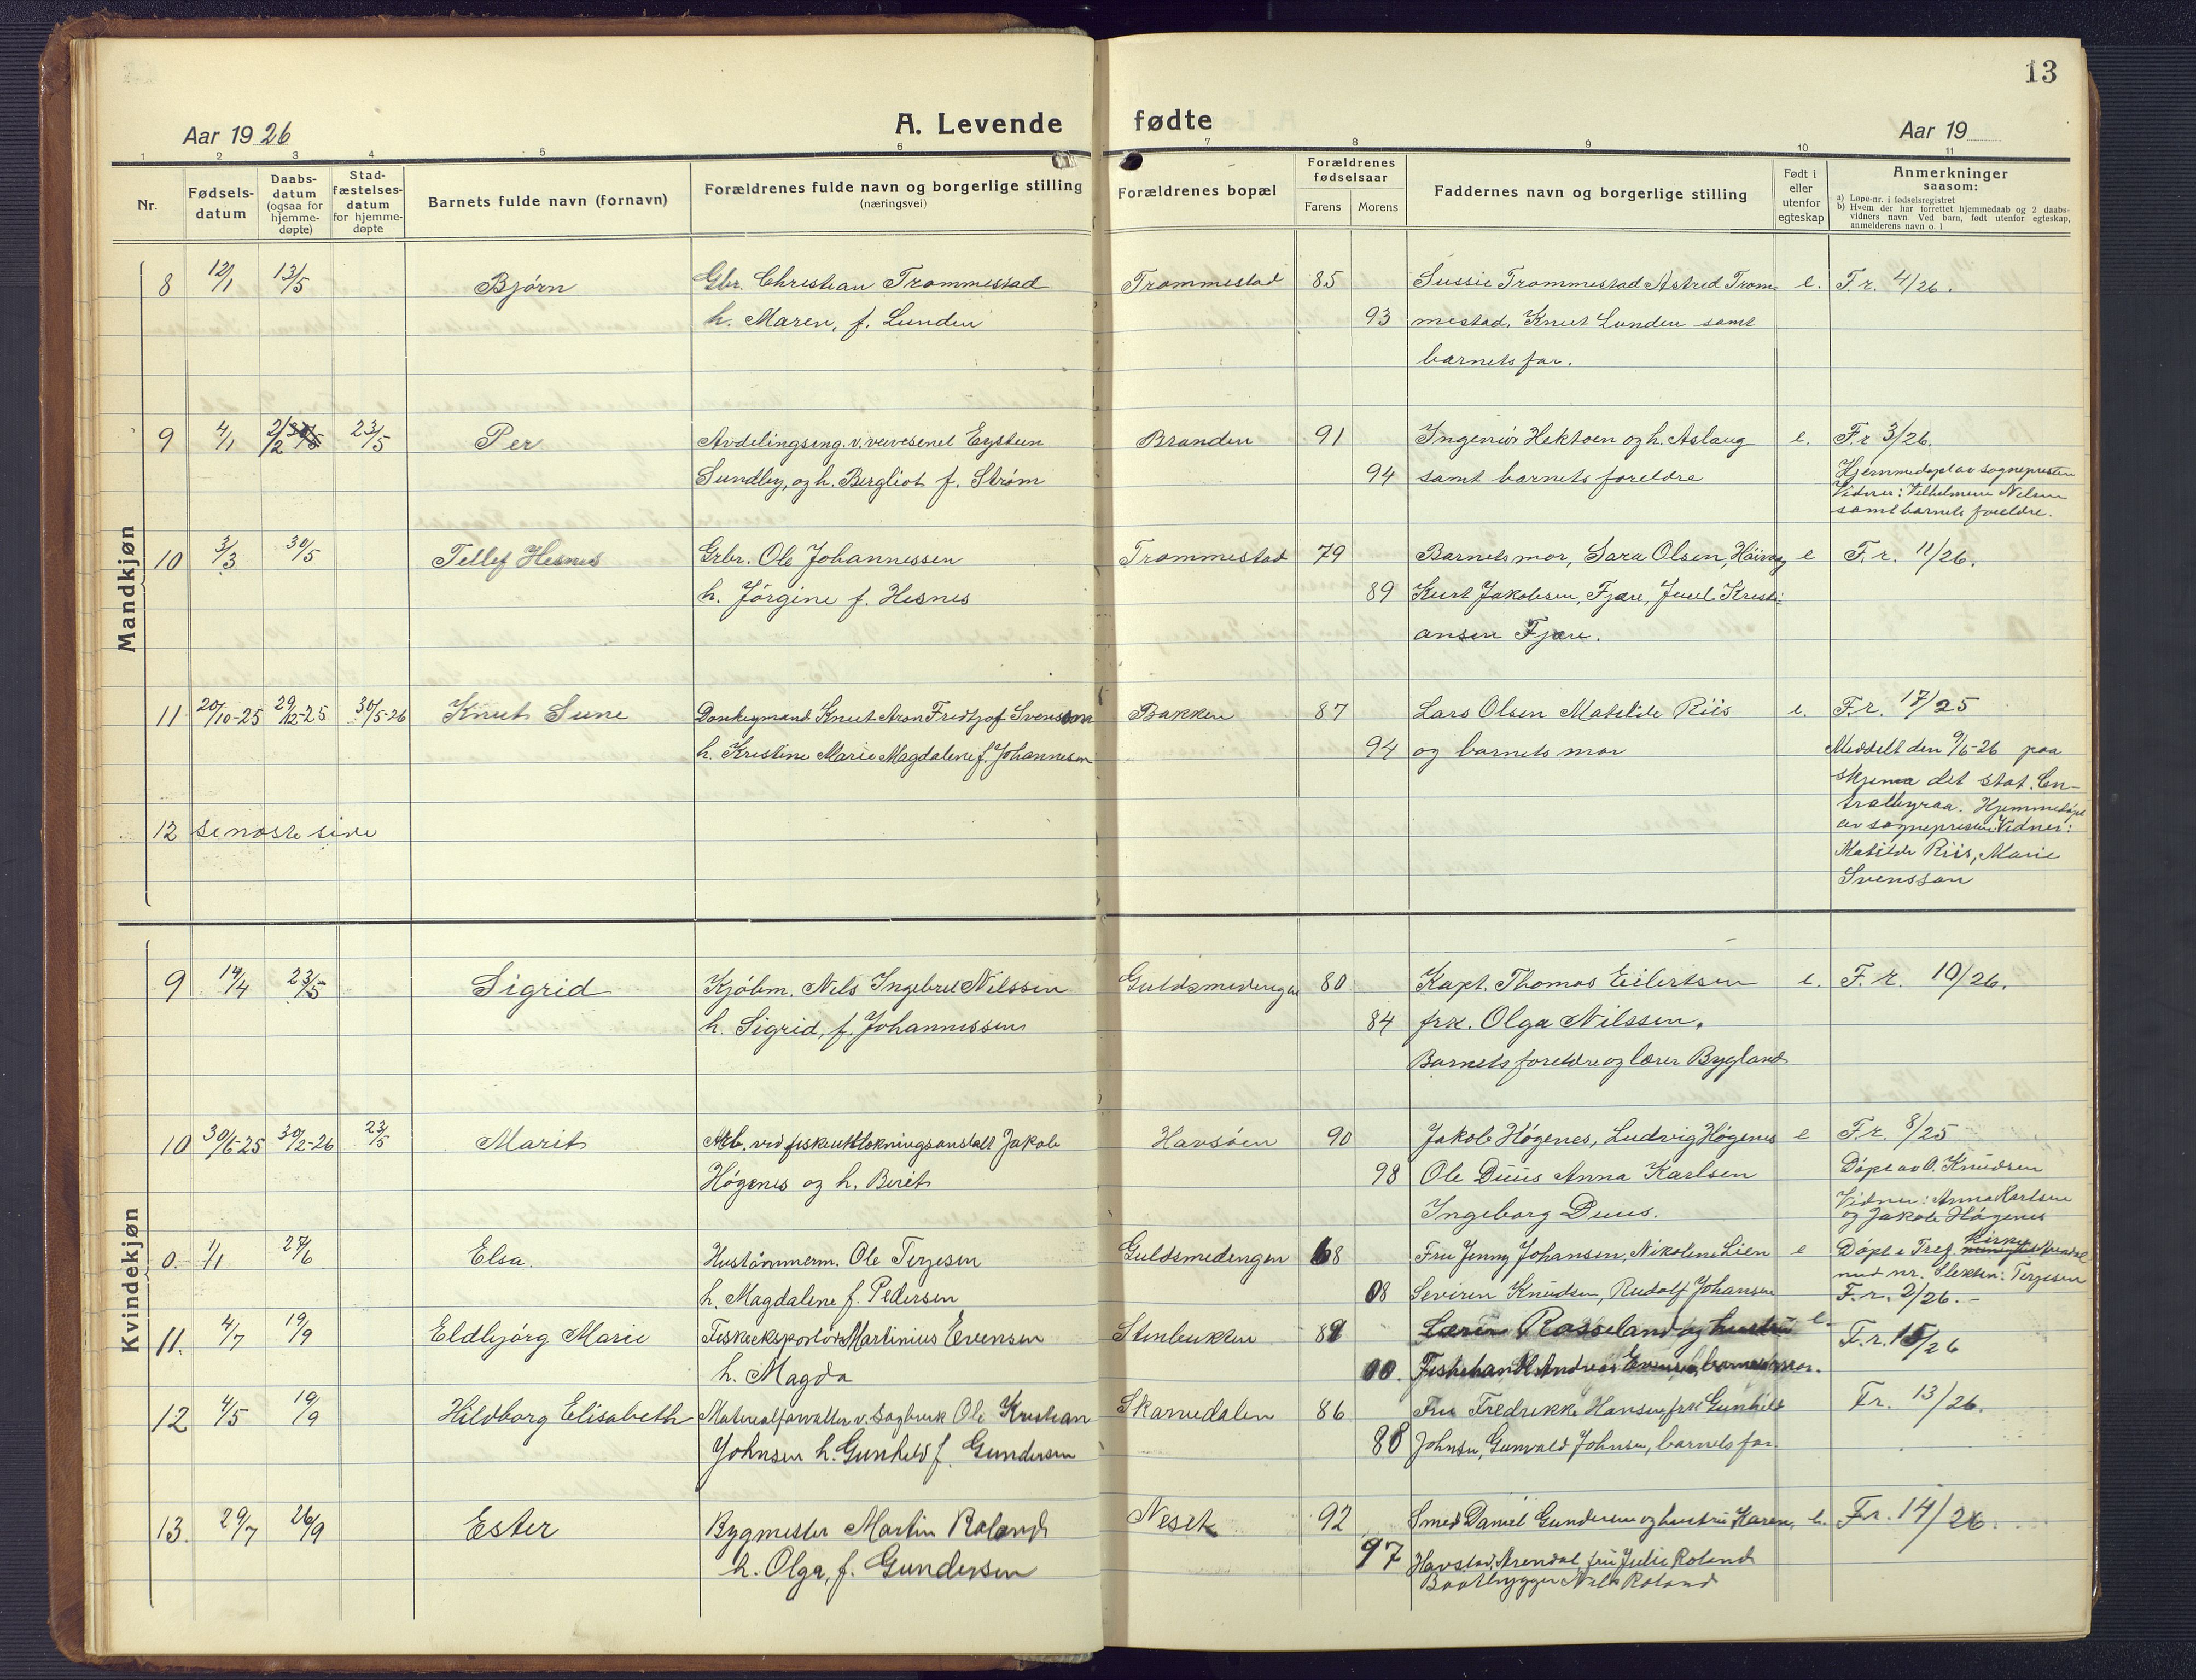 13
Aar 1926
A. Levende fødte
Aar 19
1 2 3 4 5 6 7 8 9 10 11
Nr.
Fødsels-
datum
Daabs-
datum
(ogsaa for
hjemme-
døpte)
Stad-
fæstelses-
datum
for hjemme-
døpte
Barnets fulde navn (fornavn)
Forældrenes fulde navn og borgerlige stilling
(næringsvei)
Forældrenes bopæl
Forældrenes
fødselsaar
Farens Morens
Faddernes navn og borgerlige stilling
Født i
eller
utenfor
egteskap
Anmerkninger
saasom:
a) Løpe-nr. i fødselsregistret
b) Hvem der har forrettet hjemmedaab og 2 daabs-
vidners navn Ved barn, født utenfor egteskap,
anmelderens navn o. l
Mandkjøn
8 12/1 13/5 Bjørn Gbr. Christian Trommestad Trommestad 85 Sussie Trommestad Astrid Trom- e. F.r. 4/26.
h. Maren, f. Lunden 93 mestad, Knut Lunden samt
barnets far.
9 4/1 2/2 30/5 23/5 Per Avdelingsing. v. veivesenet Eystein Branden 91 Ingeniør Hektoen og h. Aslaug e. F.r 3/26.
Sundby, og h. Bergliot f. Strøm 94 samt barnets foreldre
Hjemmedøpt av sognepresten
Vidner: Vilhelmine Nelsen
samt barnets foreldre.
10 3/3 30/5 Tellef Hesnes Grbr. Ole Johannessen Trommestad 79 Barnets mor, Sara Olsen, Høivaag e F.r. 11/26.
h. Jørgine f. Hesnes 89 Kurt Jakobsen, Fjære, Juul Kristi-
ansen Fjære.
11 20/10-25 29/12-25 30/5-26 Knut Sune Donkeymand Knut Aron Fridtjof Svensson Bakken 87 Lars Olsen Matilde Riis e. F.r. 17/25
h. Kristine Marie Magdalene f. Johannesen 94 og barnets mor
Meddelt den 9/6-26 paa
skjema det stat. Cen-
tralbyraa. Hjemmedøpt
av sognepresten Vidner:
Matilde Riis, Marie
Svensson
12 se næste side
Kvindekjøn
9 14/4 23/5 Sigrid Kjøbm. Nils Ingebret Nilssen Guldsmedengen 80 Kapt. Thomas Eilertsen e. F.r. 10/26.
h. Sigrid, f. Johannessen 84 frk. Olga Nilssen.
Barnets foreldre og lærer Bygland
10 30/6-25 30/2-26 23/5 Marit Arb. ved fiskeutklekningsanstalt Jakob Havsøen 90 Jakob Høgenes, Ludvig Høgenes e F.r. 8/25
Høgenes og h. Berit 98 Ole Duus Anna Karlsen
Ingeborg Duus.
Døpt av O. Knudsen
Vidner: Anna Karlsen
og Jakob Høgenes
0. 1/1 27/6 Elsa. Hustømmerm. Ole Terjesen Guldsmedengen 68 Fru Jenny Johansen, Nikoline Lien e Døpt i Tref. kirke Arendal
h. Magdalene f. Pedersen 08 Severin Knudsen, Rudolf Johansen
med nr. Slektsn: Terjesen
F.r. 2/26.-
11. 4/7 19/9 Eldbjørg Marie Fiskeeksportør Martinius Evensen Stenbukten 89 Lærer Rosseland og hustru e. F.r. 15/26
h. Magda 00. Fiskehandl. Andreas Evensen, barnets mor.
12 4/5 19/9 Hildborg Elisabeth Materialforvalter v. Sagbruk Ole Kristian Skarvedalen 86 Fru Fredrikke Hansen frk Gunhild Fr. 13/26.
Johnsen h. Gunhild f. Gundersen 88 Johnsen, Gunvald Johnsen, barnets far.
13. 29/7 26/9 Ester Bygmester Martin Roland Neset 92 Smed Daniel Gundersen og hustru Karen, e. Fr. 14/26.
h. Olga, f. Gundersen 97 Havstad, Arendal fru Julie Roland
Baatbygger Nils Roland